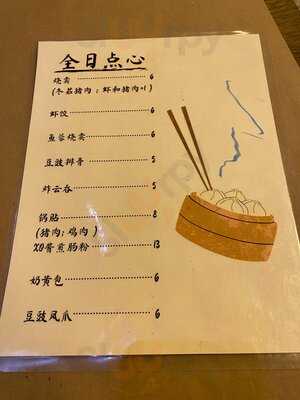 全日点心
烧卖 6
(冬菇猪肉；虾和猪肉)
虾饺 6
鱼蓉烧卖 6
豆豉排骨 5
炸云吞 5
锅贴 8
(猪肉；鸡肉)
XO酱煎肠粉 13
奶黄包 6
豆豉凤爪 6